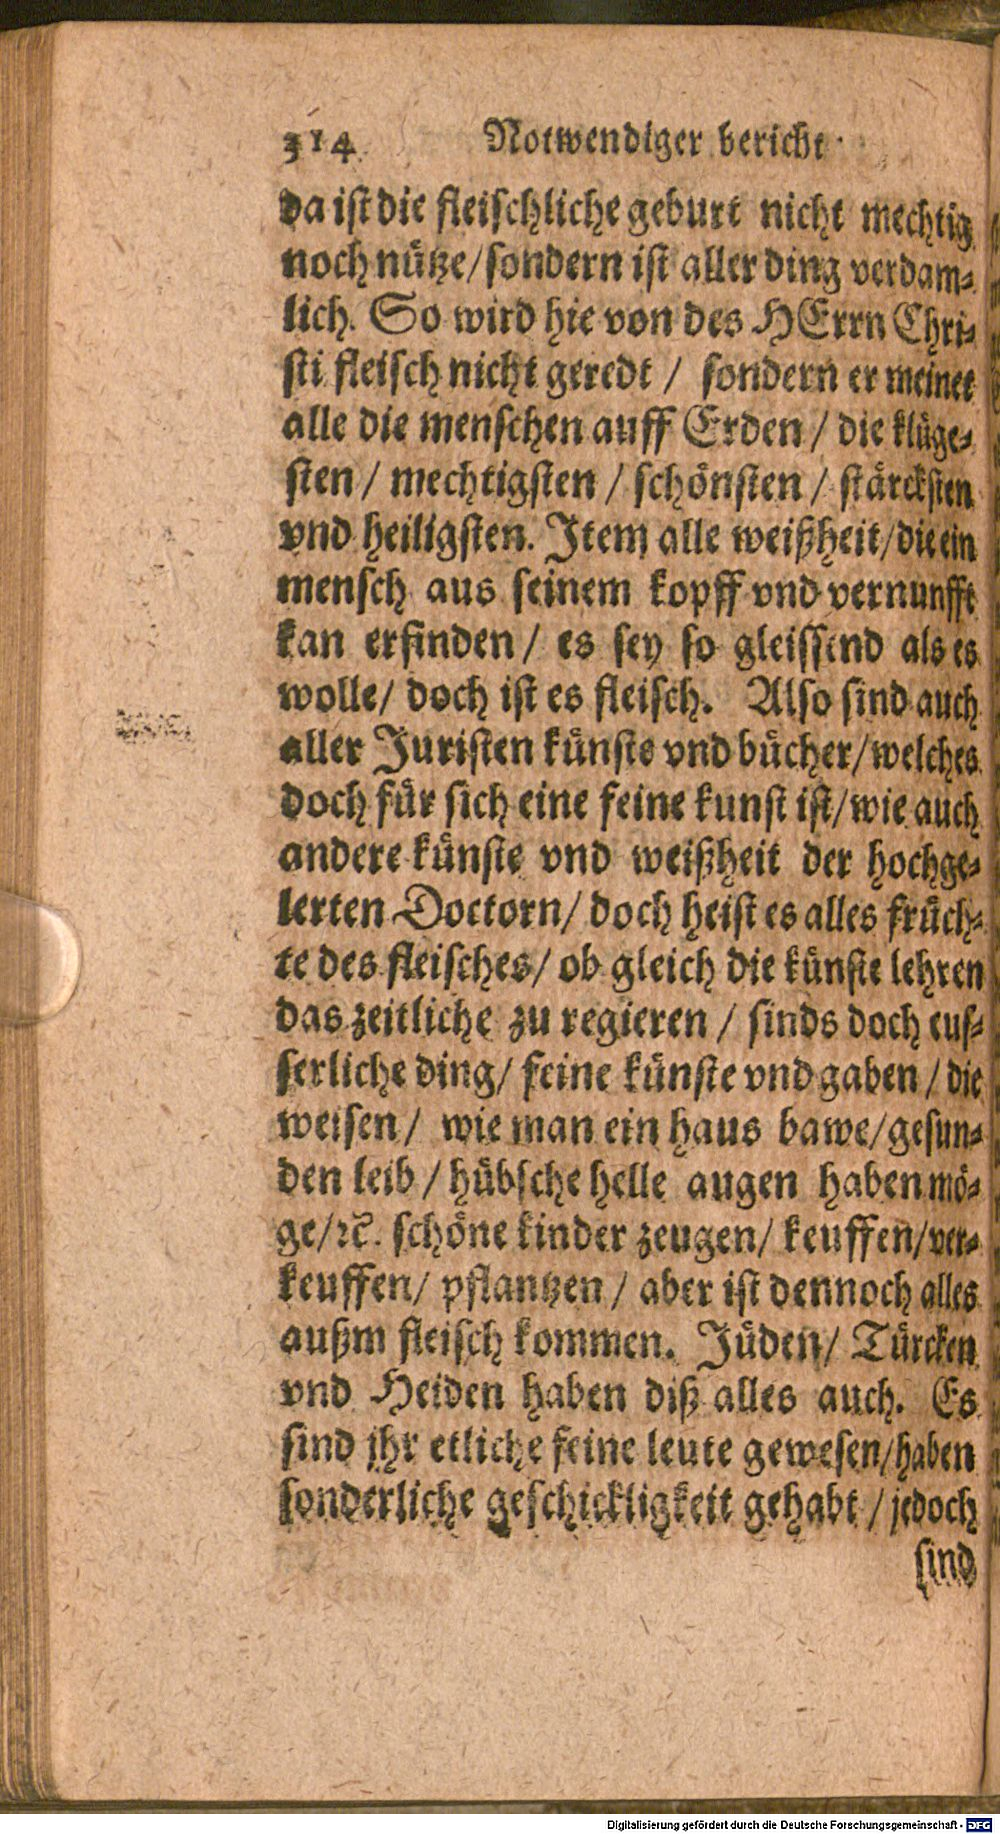 314 Notwendiger bericht
da ist die fleischliche geburt nicht mechtig
noch nütze/sondern ist aller ding verdam⸗
lich. So wird hie von des HErrn Chri⸗
sti fleisch nicht geredt / sondern er meinet
alle die menschen auff Erden / die klüge⸗
sten / mechtigsten / schönsten / stärcksten
vnd heiligsten. Item alle weißheit/die ein
mensch aus seinem kopff vnd vernunfft
kan erfinden / es sey so gleissend als es
wolle/ doch ist es fleisch. Also sind auch
aller Juristen künste vnd bücher/welches
doch für sich eine feine kunst ist/wie auch
andere künste vnd weißheit der hochge⸗
lerten Doctorn/ doch heist es alles früch⸗
te des fleisches/ ob gleich die künste lehren
das zeitliche zu regieren / sinds doch eus⸗
serliche ding/ feine künste vnd gaben / die
weisen/ wie man ein haus bawe/gesun⸗
den leib / hübsche helle augen haben mö⸗
ge/ꝛc̃. schöne kinder zeugen/ keuffen/ver⸗
keuffen/ pflantzen / aber ist dennoch alles
außm fleisch kommen. Jüden/ Türcken
vnd Heiden haben diß alles auch. Es
sind jhr etliche feine leute gewesen/haben
sonderliche geschickligkeit gehabt / jedoch
sind
Digitalisierung gefördert durch die Deutsche Forschungsgemeinschaft - DFG